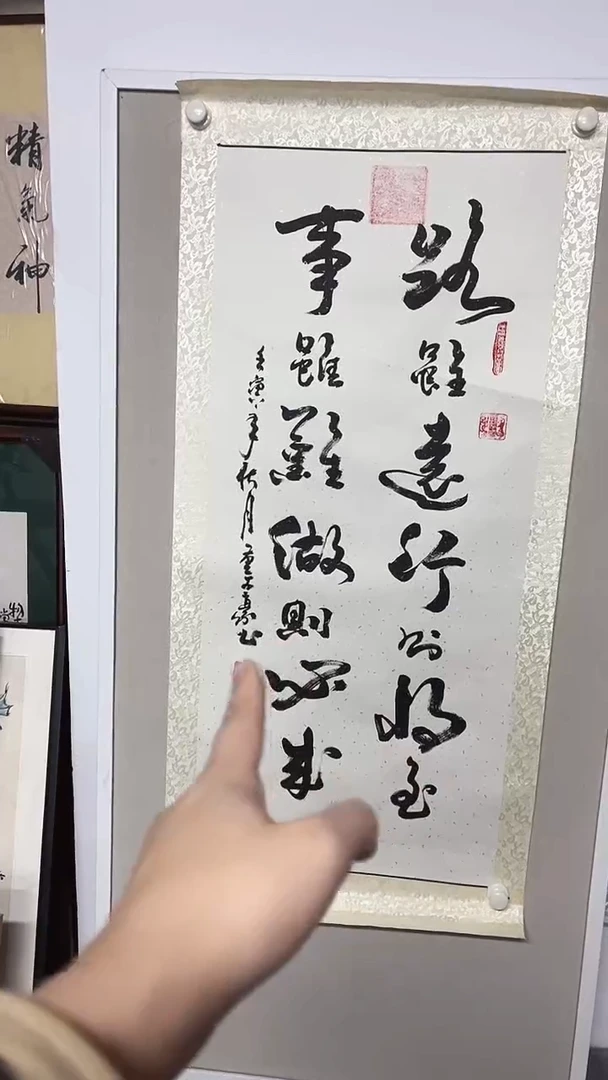 路雖遠行則將至
事雖難做則必成
壬寅年秋月
精氣神